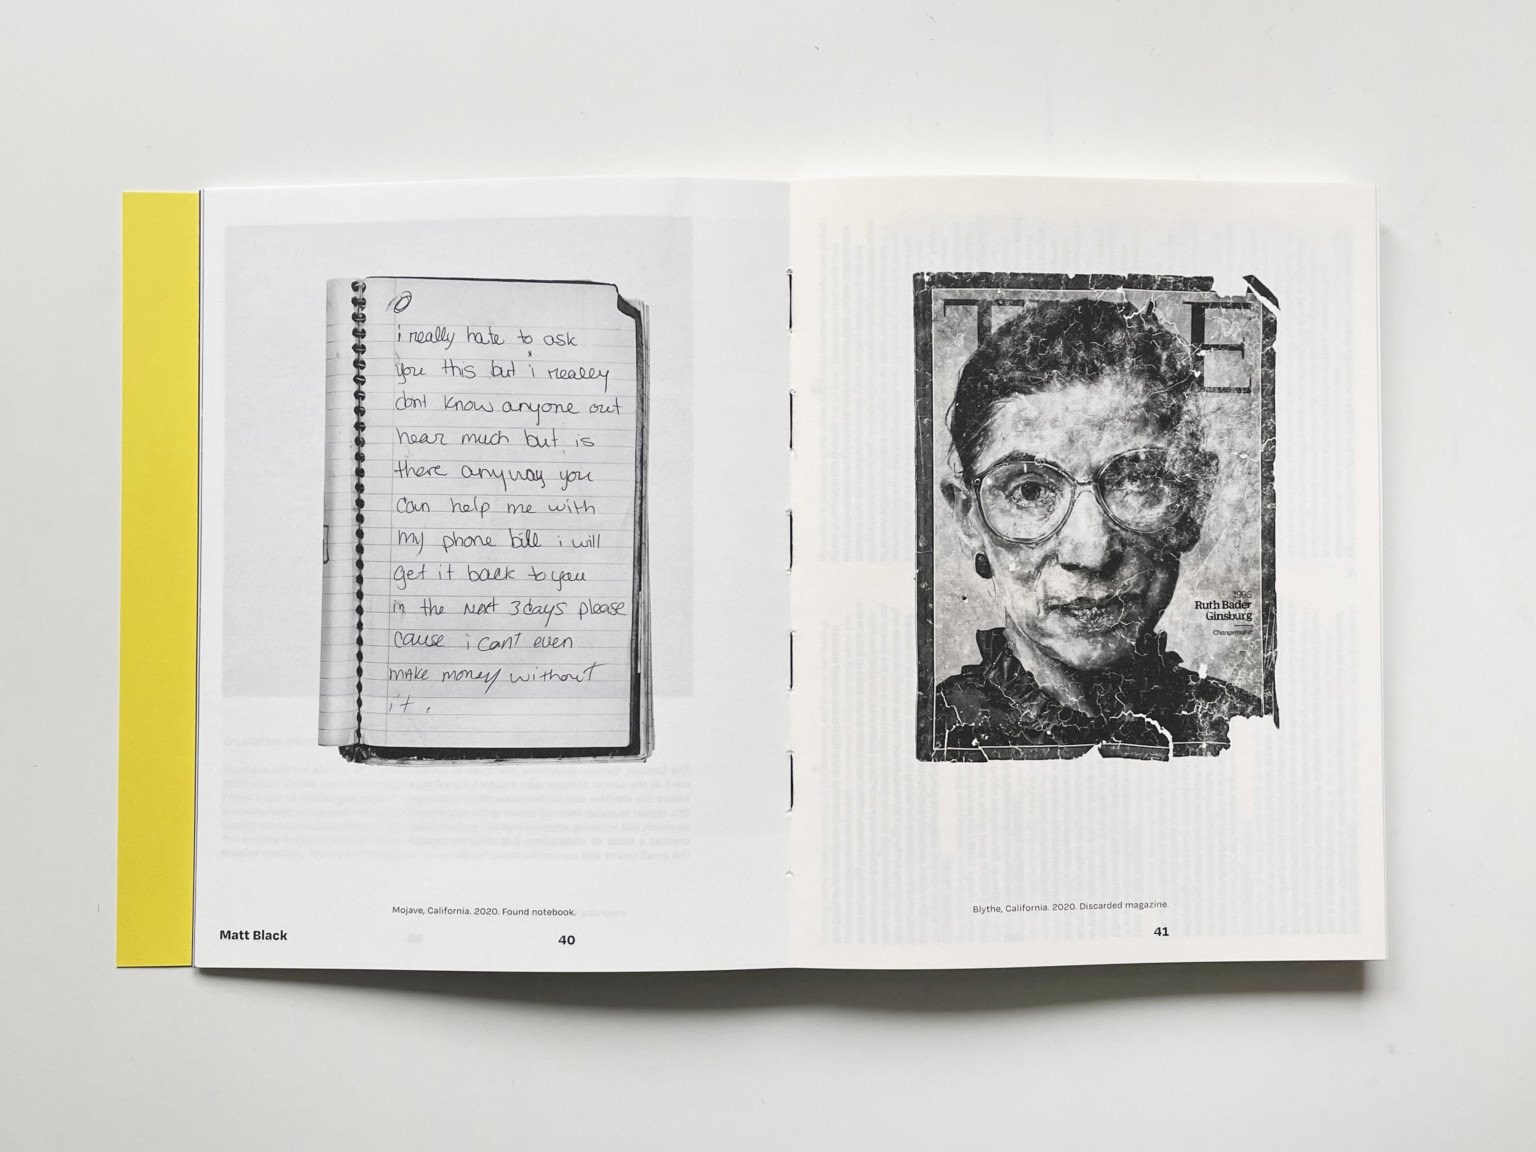 i really hate to ask
you this but i really
dont know anyone out
hear much but is
there anyway you
can help me with
my phone bill i will
get it back to you
in the next 3 days please
cause i cant even
make money without
it.
Mojave, California. 2020. Found notebook.
Matt Black
40
T E
1996
Ruth Bader
Ginsburg
Changemaker
Blythe, California. 2020. Discarded magazine.
41